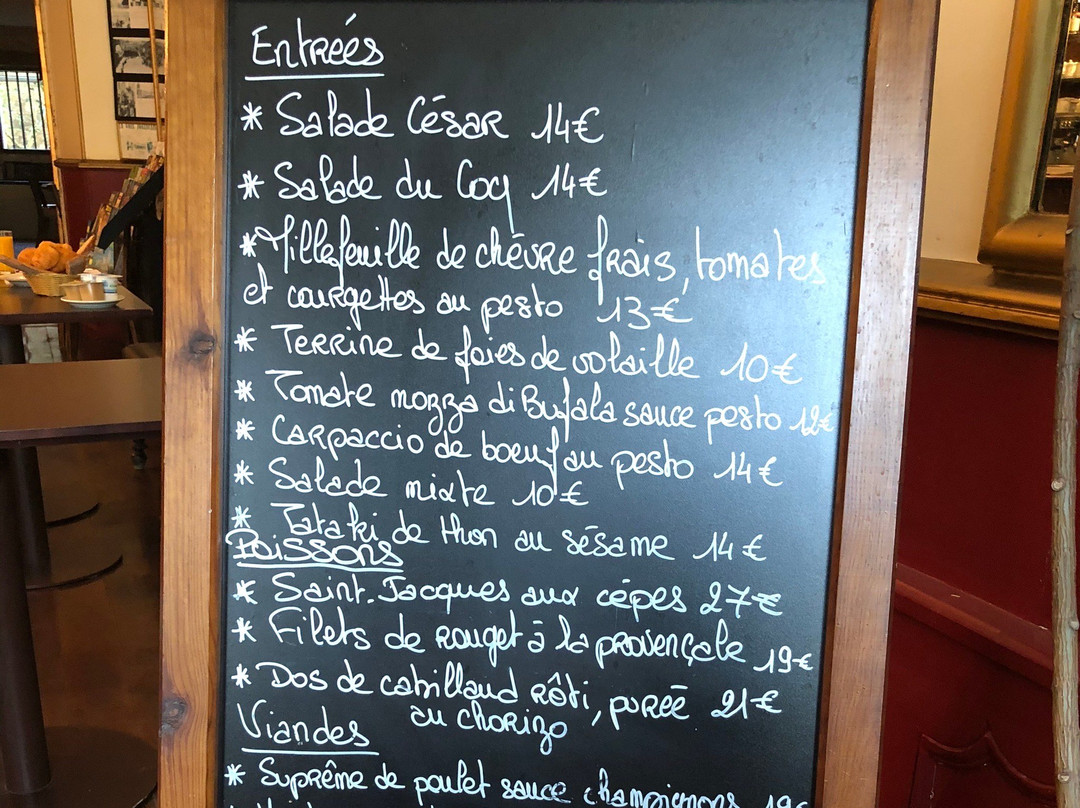 Entrées
* Salade César 14€
* Salade du Coq 14€
* Millefeuille de chèvre frais, tomates
et courgettes au pesto 13€
* Terrine de foies de volaille 10€
* Tomate mozza di Bufala sauce pesto 12€
* Carpaccio de boeuf au pesto 14€
* Salade mixte 10€
* Tataki de thon au sésame 14€
Poissons
* Saint-Jacques aux cèpes 27€
* Filets de rouget à la provençale 19€
* Dos de cabillaud rôti, purée 21€
au chorizo
Viandes
* Suprême de poulet sauce champignons